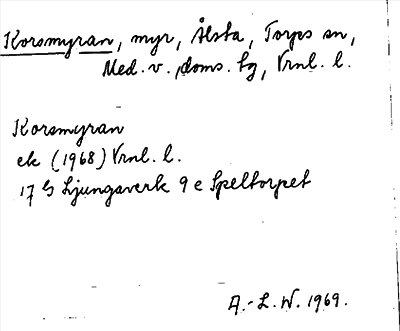 Korsmyran, myr, Ålsta, Torps sn,
Med. v. doms. tg, Vrnl. l.
Korsmyran
ek (1968) Vrnl. l.
17 G Ljungaverk 9 e Speltorpet
A.-L. W. 1969.